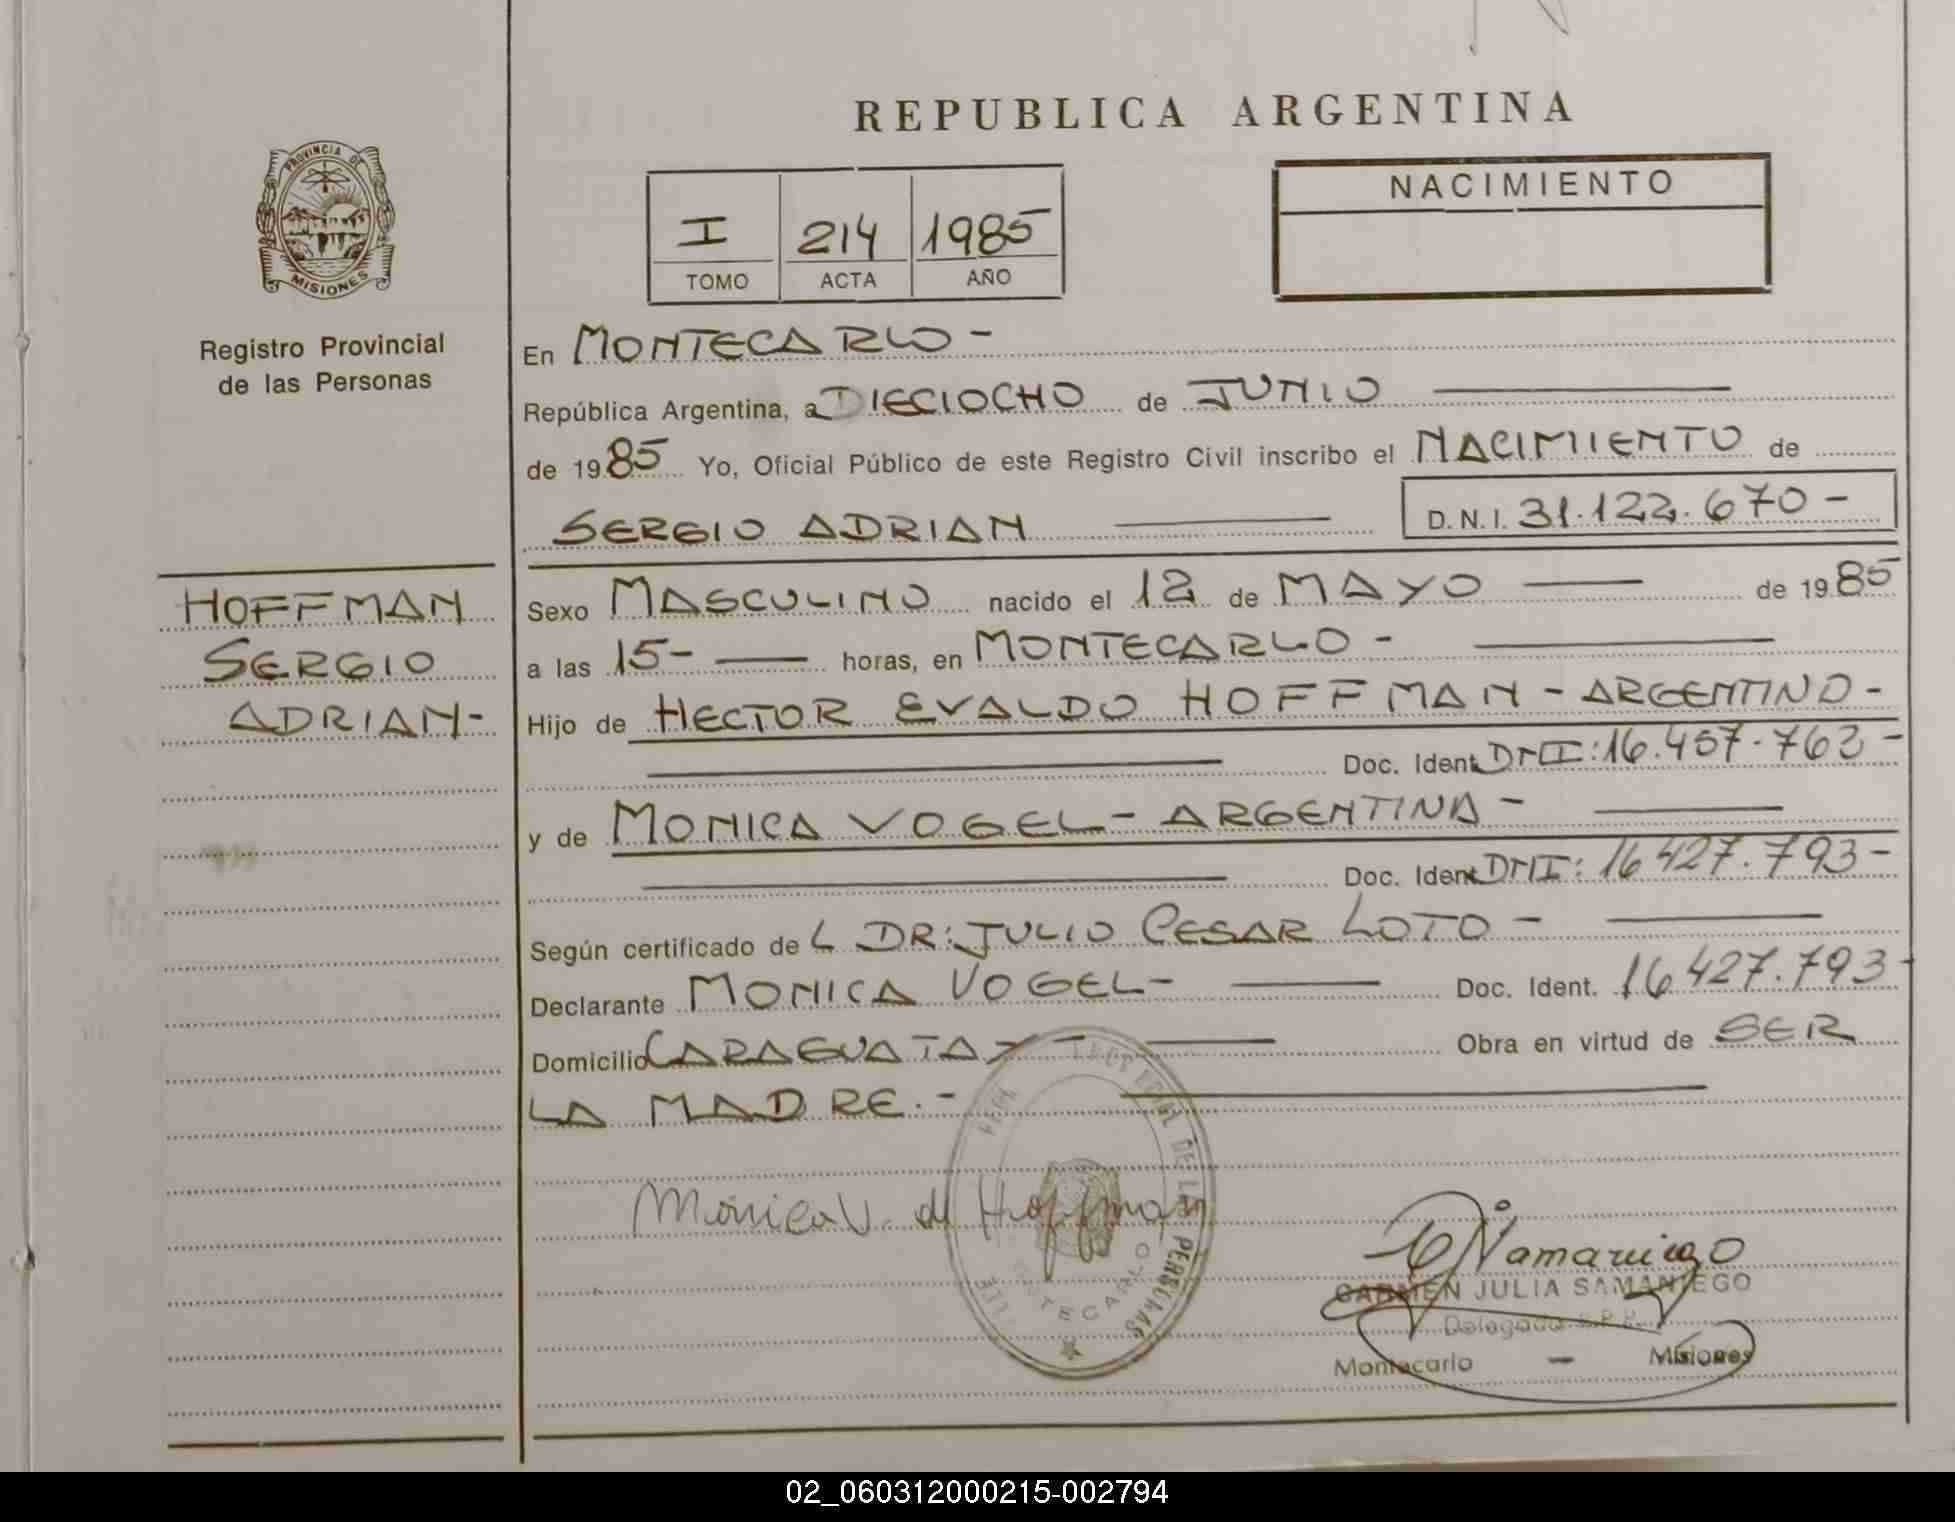 REPUBLICA ARGENTINA
PROVINCIA DE
MISIONES
Registro Provincial
de las Personas
I 214 1985
TOMO ACTA AÑO
NACIMIENTO
En MONTECARLO -
República Argentina, a DIECIOCHO de JUNIO
de 1985 Yo, Oficial Público de este Registro Civil inscribo el NACIMIENTO de
SERGIO ADRIAN D.N.I. 31.122.670 -
HOFFMAN
SERGIO
ADRIAN-
Sexo MASCULINO nacido el 12 de MAYO de 1985
a las 15- horas, en MONTECARLO -
Hijo de HECTOR EVALDO HOFFMAN - ARGENTINO -
Doc. Ident. DNI: 16.457.762 -
y de MONICA VOGEL - ARGENTINA -
Doc. Ident. DNI: 16 427.793 -
Según certificado del DR: JULIO CESAR LOTO -
Declarante MONICA VOGEL - Doc. Ident. 16 427.793 -
Domicilio CARAGUATAY - Obra en virtud de SER
LA MADRE. -
Mónica V. de Hoffman
DE LAS PERSONAS
MONTECARLO
CARMEN JULIA SAMANIEGO
Delegada R.P.P.
Montecarlo - Misiones
02_060312000215-002794